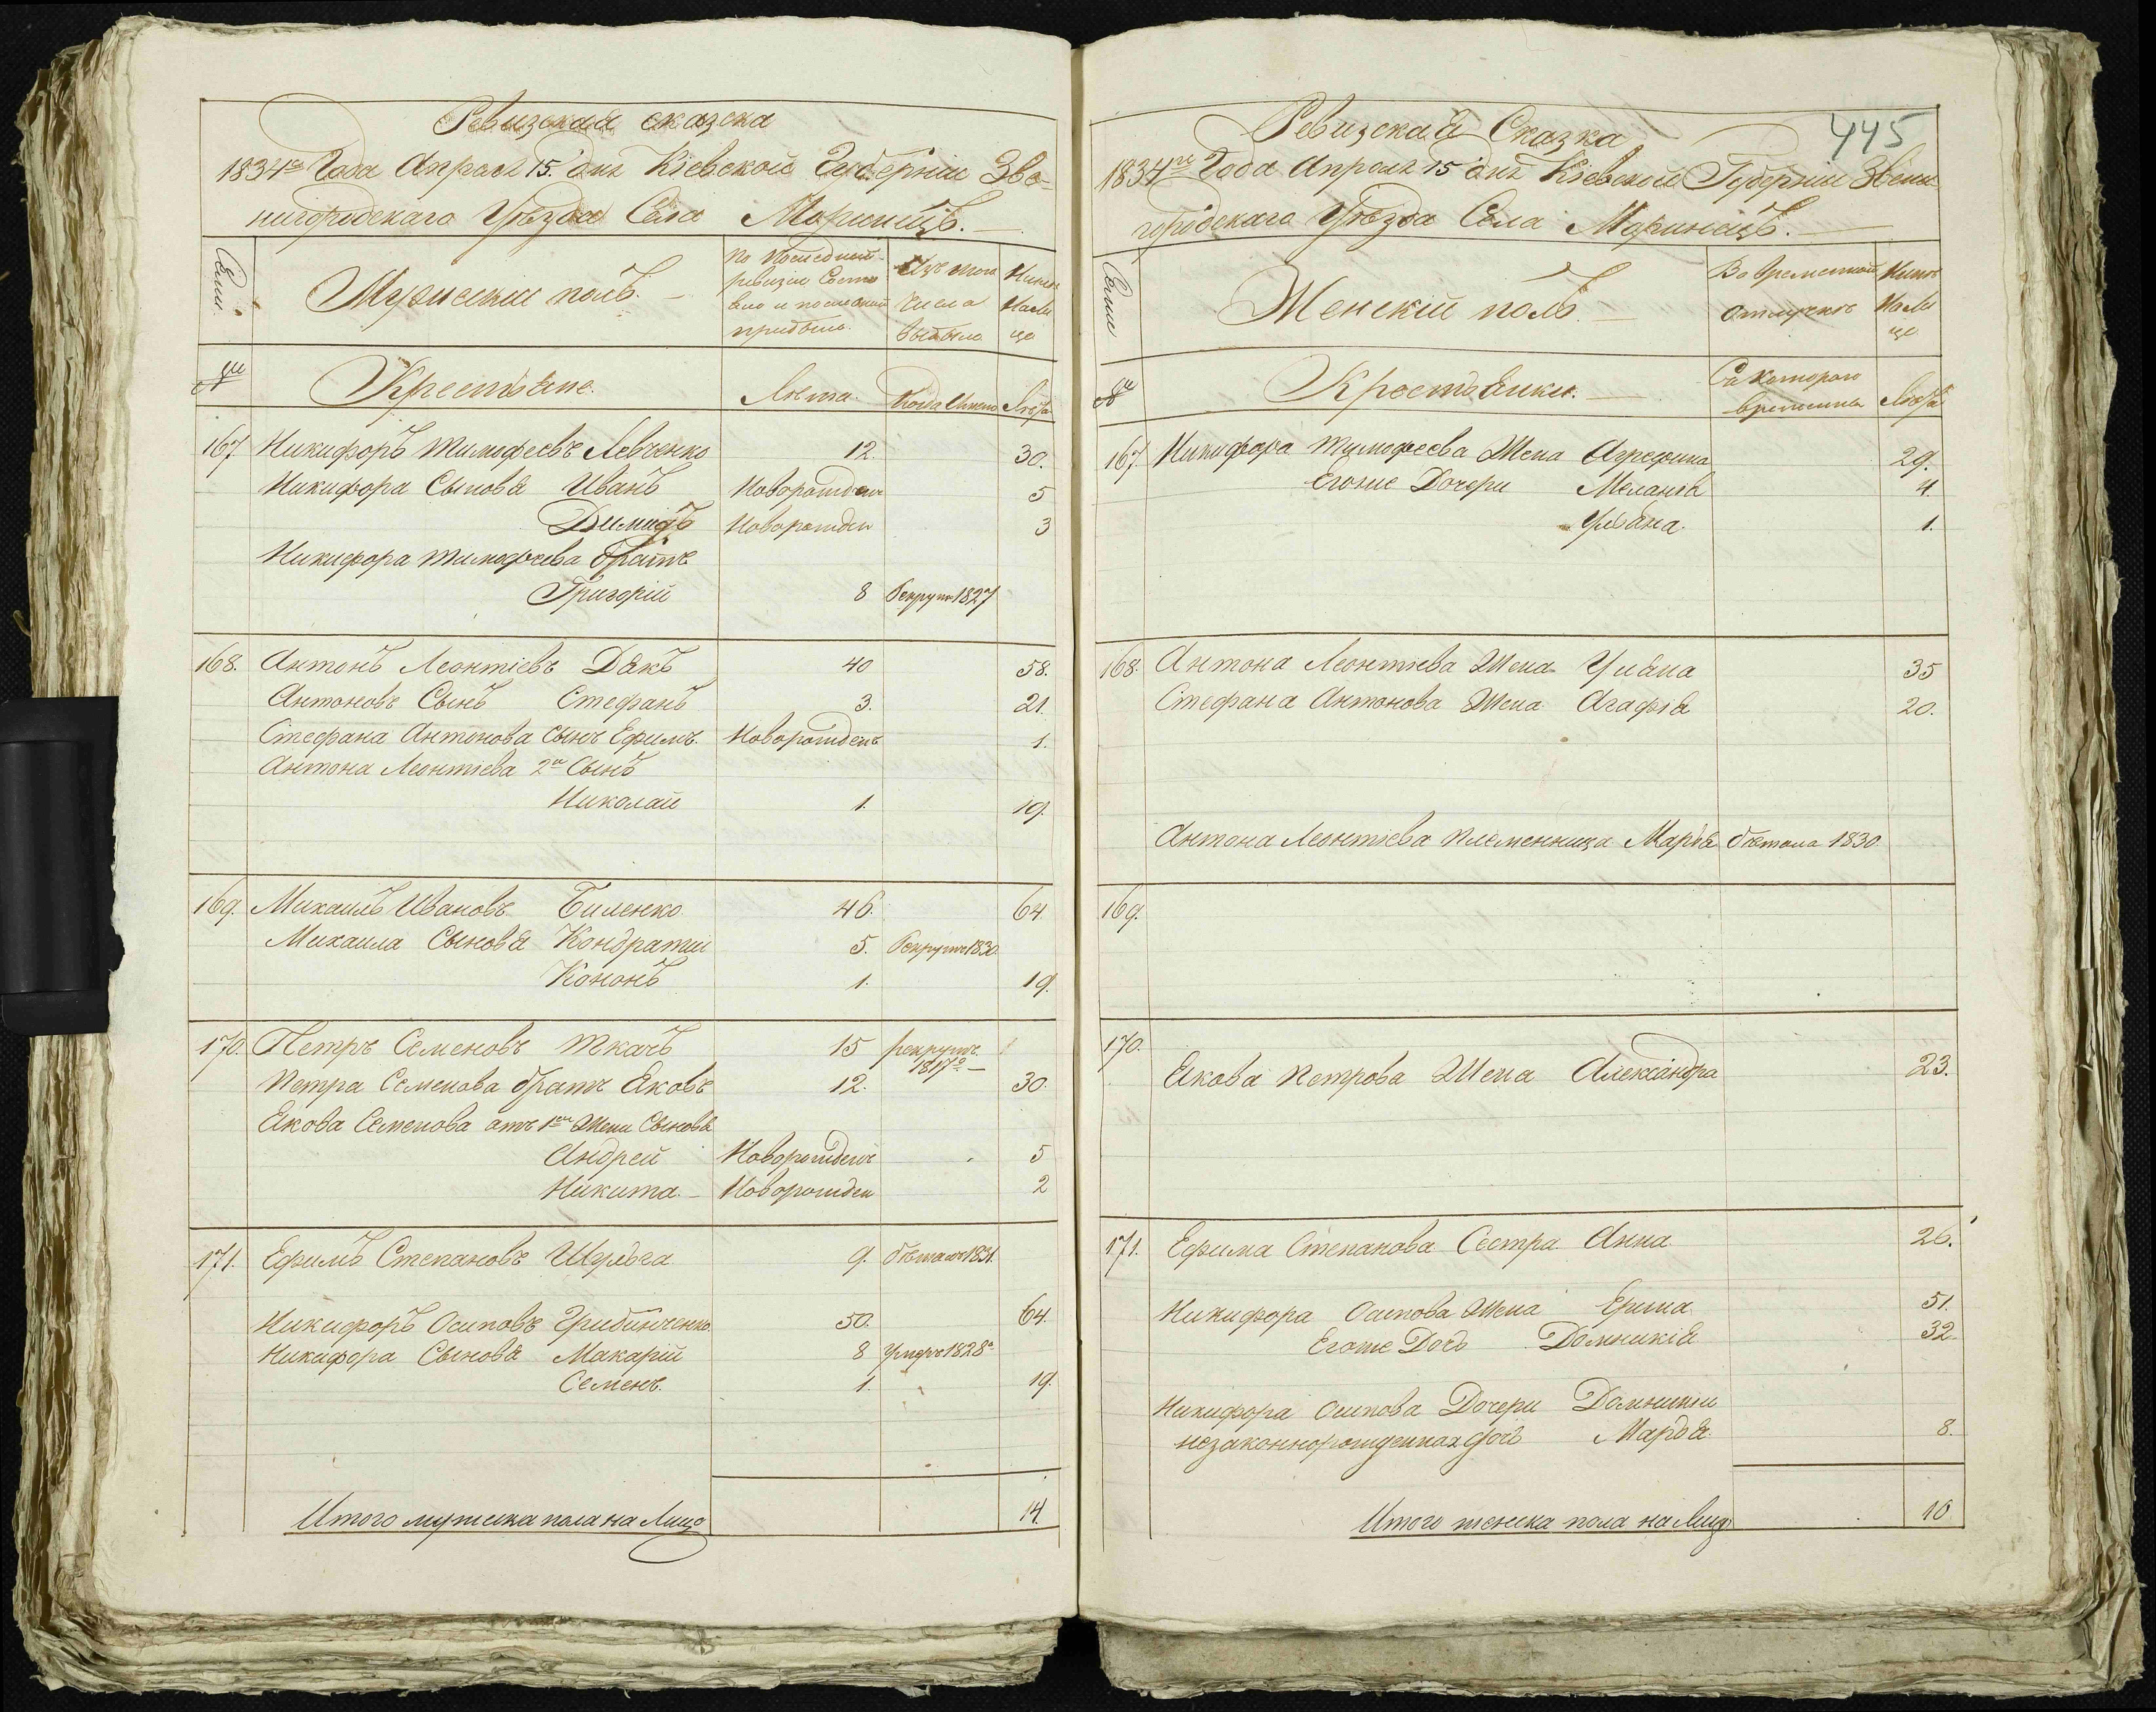 Ревизская сказска
1834го Года Апреля 15. дня Кіевской Губерніи Зве-
нигородскаго Уѣзда Села Моринецъ.
Семьи
Мужескій полъ.
По последней
ревизіи Состо
яло и после оной
прибыло.
Изъ того
числа
выбыло
Ныне
На Ли
цо
№
Крестьяне.
Лѣта.
Когда Именно
Лѣта
167 Никифоръ Тимофеевъ Левченко 12. 30.
Никифора Сыновья Иванъ Новорожденъ 5
Димидъ Новорожден 3
Никифора Тимофеева братъ
Григорій 8 Рекрутъ 1827
168. Антонъ Леонтіевъ Дякъ 40 58.
Антоновъ Сынъ Стефанъ 3. 21.
Стефана Антонова сынъ Ефимъ. Новорожденъ 1.
Антона Леонтіева 2й Сынъ
Николай 1. 19.
169. Михаилъ Ивановъ Биленко 46. 64
Михаила Сыновья Кондратій 5. Рекрутъ 1830.
Кононъ 1. 19.
170. Петръ Семеновъ Ткачъ 15 рекрутъ
Петра Семенова братъ Яковъ 12. 30.
Якова Семенова отъ 1ой Жены Сыновья
Андрей Новорожденъ 5
Никита Новорожден 2
171. Ефимъ Степановъ Шульга 9. бѣжалъ 1831.
Никифоръ Осиповъ Грибинченко 50. 64.
Никифора Сыновья Макарій 8 Умеръ 1828го
Семенъ. 1. 19.
Итого мужеска пола на Лицо 14.
445
Ревизская Сказка
1834го Года Апреля 15 дня Кіевской Губерніи Звени
городскаго Уѣзда Села Моринецъ.
Семьи
Женскій полъ
Во Временной
отлучке
Ныне
На Ли
цо
№
Крестьянки.
Съ Котораго
времени
Лѣта
167. Никифора Тимофеева Жена Агрефина 29.
Егоже Дочери Меланія 4.
Ульяна. 1.
168. Антона Леонтіева Жена Ульяна 35
Стефана Антонова Жена Агафія 20.
Антона Леонтіева племенница Марья бѣжала 1830
169.
170.
Якова Петрова Жена Александра 23.
171. Ефима Степанова Сестра Анна 26.
Никифора Осипова Жена Ерина 51.
Егоже Дочь Домникія 32.
Никифора Осипова Дочери Домникіи
незаконнорожденная дочь Марья 8.
Итого женска пола на Лицо 10